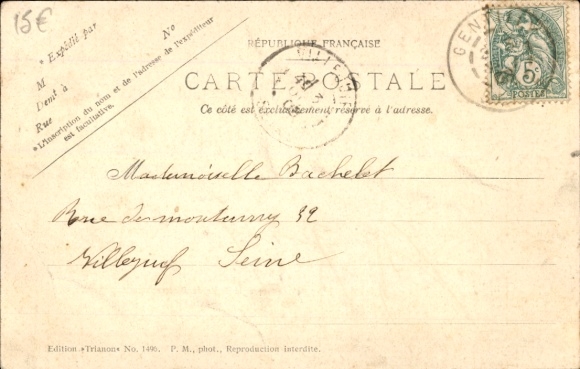 15€
* Expédié par
No
M
Dem^t à
Rue
*L'inscription du nom et de l'adresse de l'expéditeur
est facultative.
RÉPUBLIQUE FRANÇAISE
CARTE POSTALE
Ce côté est exclusivement réservé à l'adresse.
GENT
5c
POSTES
Mademoiselle Bachelet
Rue de 32
Villejuif Seine
Edition «Trianon» No. 1496. P. M., phot., Reproduction interdite.